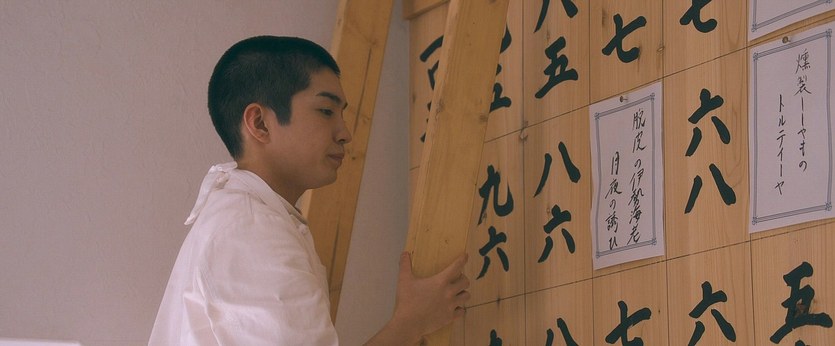 燻製ししゃもの
トルティーヤ
五
七
六八
六
七
脱皮の伊勢海老
月夜の誘ひ
七
八五
八六
八
五
九六